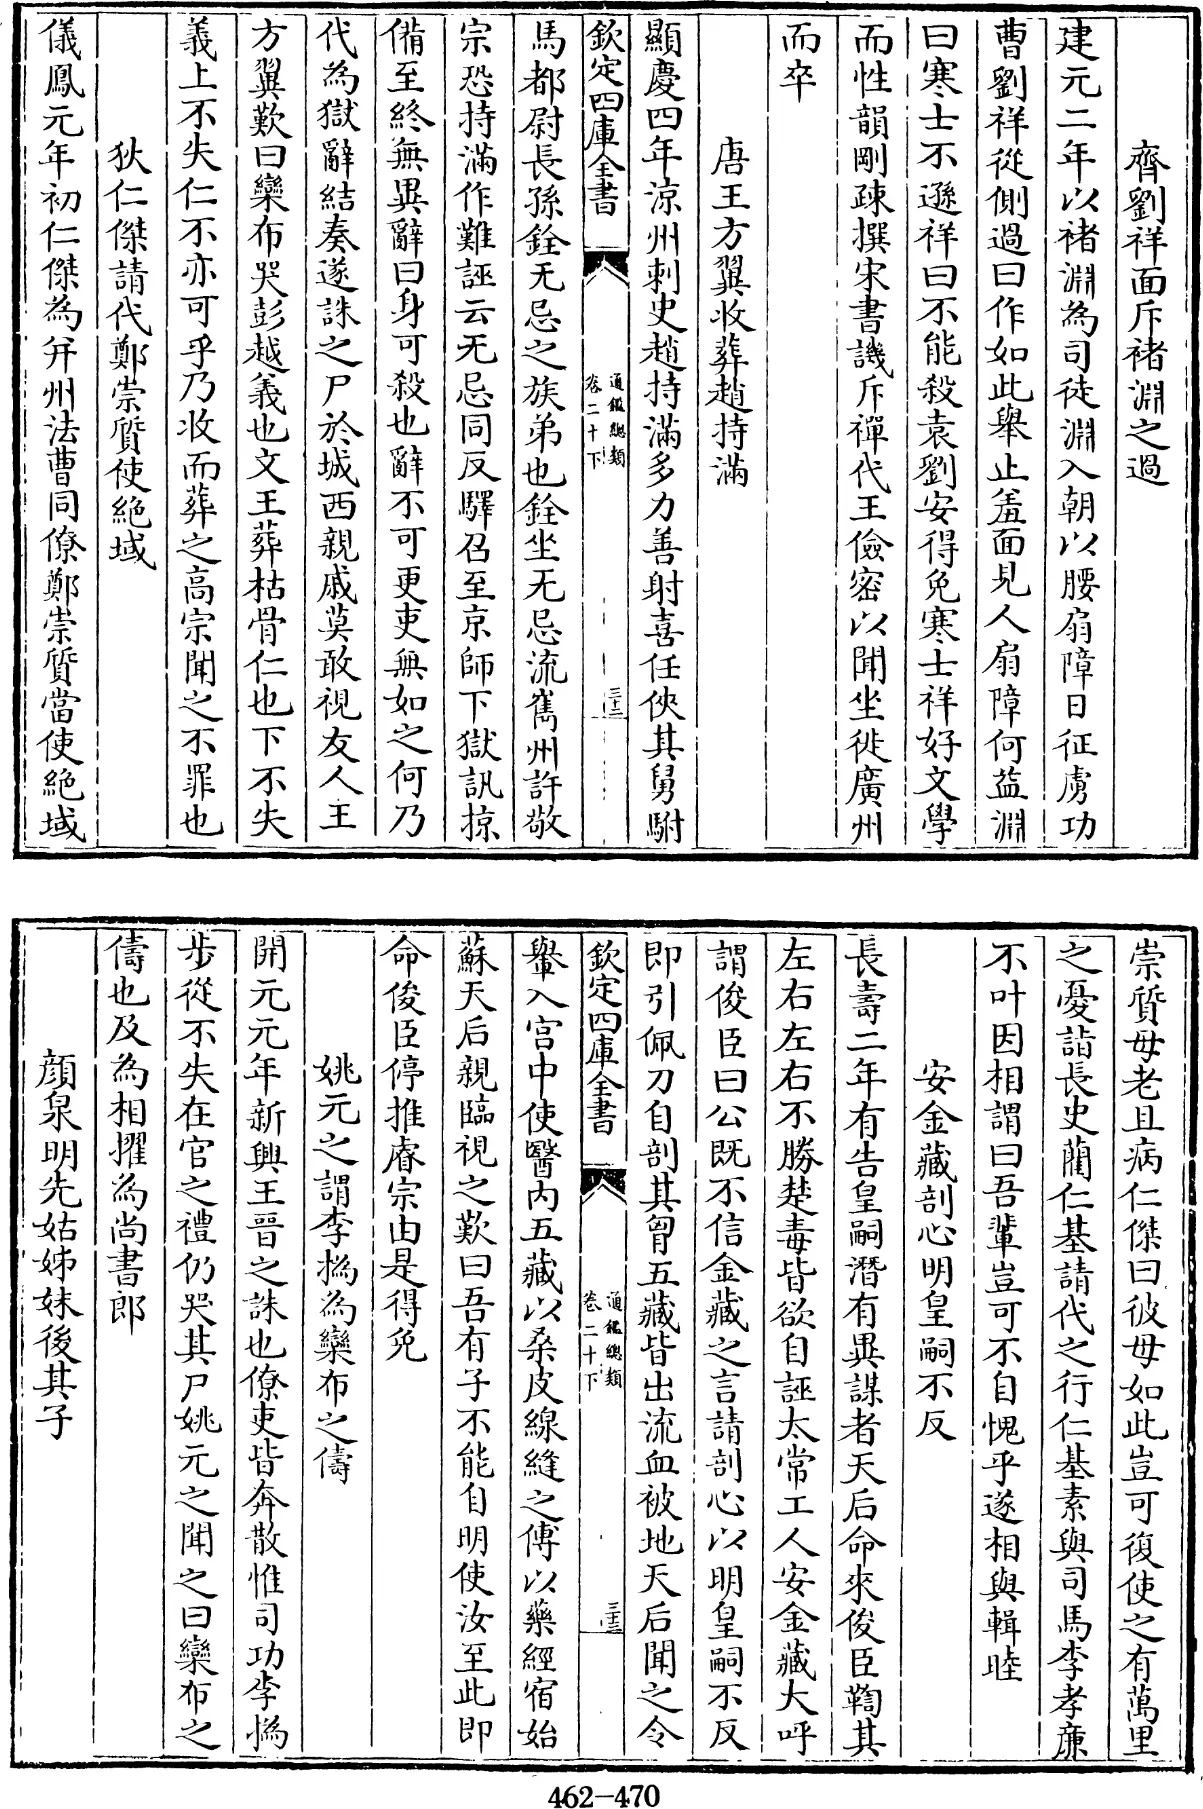 齊劉祥面斥褚淵之過
建元二年以褚淵為司徒淵入朝以腰扇障日征虜功
曹劉祥從側過曰作如此舉止羞面見人扇障何益淵
曰寒士不遜祥曰不能殺袁劉安得免寒士祥好文學
而性韻剛疎撰宋書譏斥禪代王儉密以聞坐徙廣州
而卒
唐王方翼收葬趙持滿
顯慶四年涼州刺史趙持滿多力善射喜任俠其舅駙
欽定四庫全書
通鑑總類
卷二十下
三十二
馬都尉長孫銓无忌之族弟也銓坐无忌流巂州許敬
宗恐持滿作難誣云无忌同反驛召至京師下獄訊掠
備至終無異辭曰身可殺也辭不可更吏無如之何乃
代為獄辭結奏遂誅之尸於城西親戚莫敢視友人王
方翼歎曰欒布哭彭越義也文王葬枯骨仁也下不失
義上不失仁不亦可乎乃收而葬之高宗聞之不罪也
狄仁傑請代鄭崇質使絶域
儀鳳元年初仁傑為并州法曹同僚鄭崇質當使絶域
崇質母老且病仁傑曰彼母如此豈可復使之有萬里
之憂詣長史藺仁基請代之行仁基素與司馬李孝廉
不叶因相謂曰吾輩豈可不自愧乎遂相與輯睦
安金藏剖心明皇嗣不反
長壽二年有告皇嗣潛有異謀者天后命來俊臣鞫其
左右左右不勝楚毒皆欲自誣太常工人安金藏大呼
謂俊臣曰公既不信金藏之言請剖心以明皇嗣不反
即引佩刀自剖其胷五藏皆出流血被地天后聞之令
欽定四庫全書
通鑑總類
卷二十下
三十三
轝入宫中使醫内五藏以桑皮線縫之傅以藥經宿始
蘇天后親臨視之歎曰吾有子不能自明使汝至此即
命俊臣停推睿宗由是得免
姚元之謂李撝為欒布之儔
開元元年新興王晉之誅也僚吏皆奔散惟司功李撝
步從不失在官之禮仍哭其尸姚元之聞之曰欒布之
儔也及為相擢為尚書郎
顔泉明先姑姊妹後其子
462-470